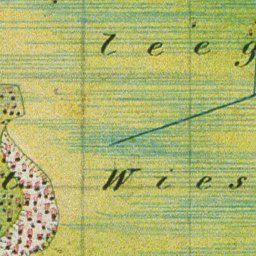 leeg
Wies
t